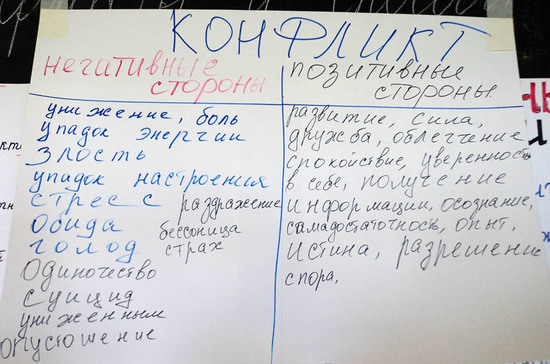 КОНФЛИКТ
негативные
стороны
унижение, боль
упадок энергии
злость
упадок настроения
стресс раздражение
обида бессоница
голод страх
одиночество
суицид
униженным
опустошение
позитивные
стороны
развитие, сила,
дружба, облегчение
спокойствие, уверенность
в себе, получение
информации, осознание,
самодостаточность, опыт,
истина, разрешение
спора,